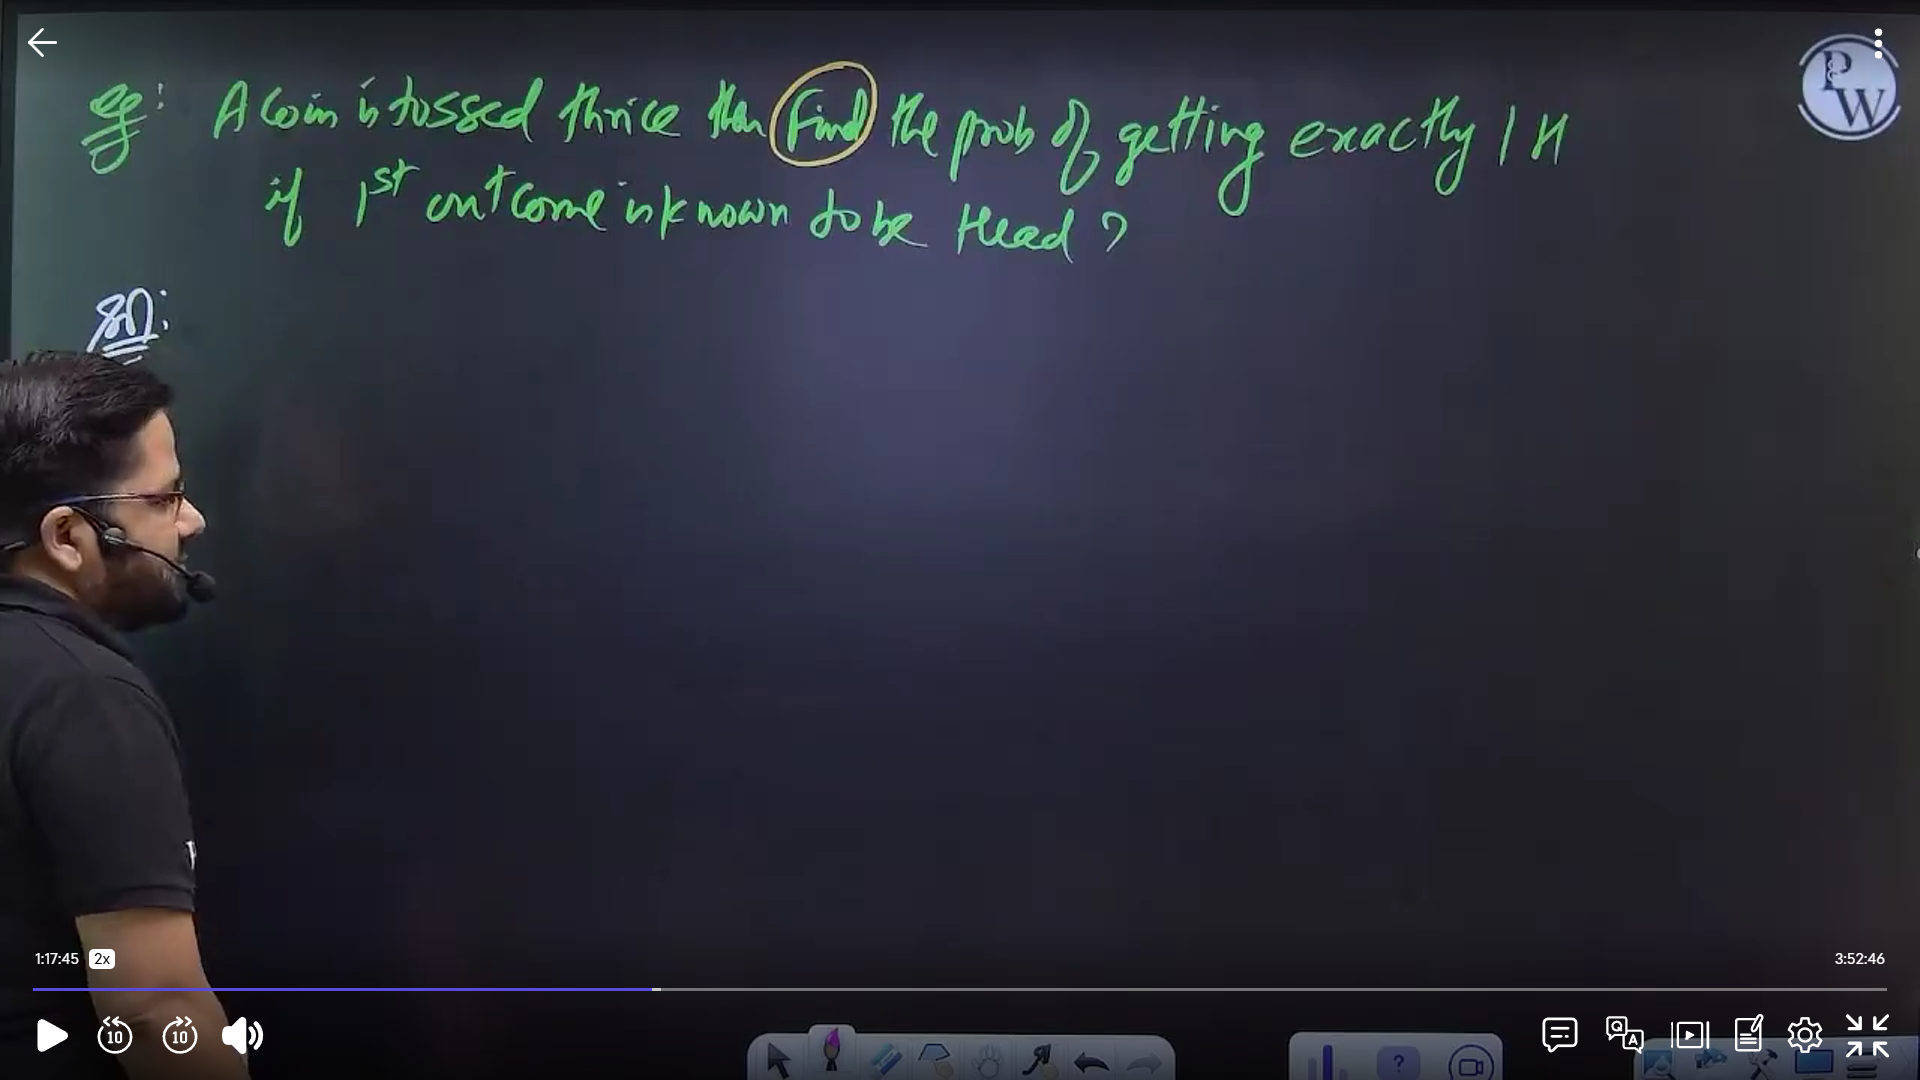 eg: A coin is tossed thrice then Find the prob of getting exactly 1 H
if 1st outcome is known to be Head ?
Sol:
PW
1:17:45 2x
3:52:46
10 10
QA
?